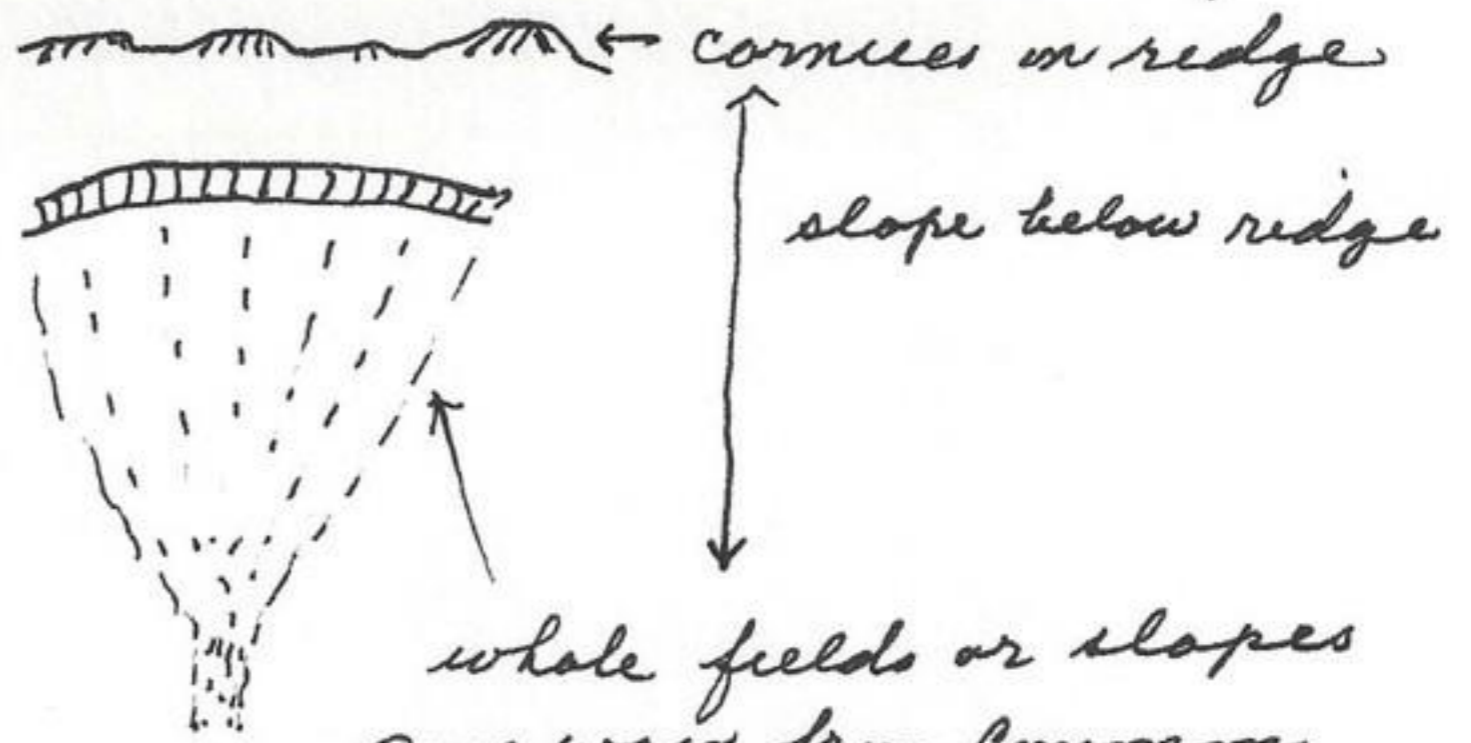 cornices on ridge
slope below ridge
whole fields or slopes
from